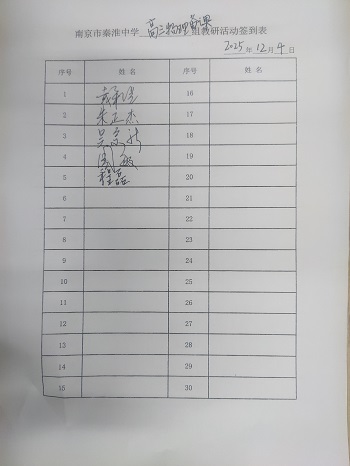 南京市秦淮中学 高三物理备课 组教研活动签到表
2025年12月4日
序号 姓名 序号 姓名
1 16
2 朱正杰 17
3 18
4 19
5 程磊 20
6 21
7 22
8 23
9 24
10 25
11 26
12 27
13 28
14 29
15 30